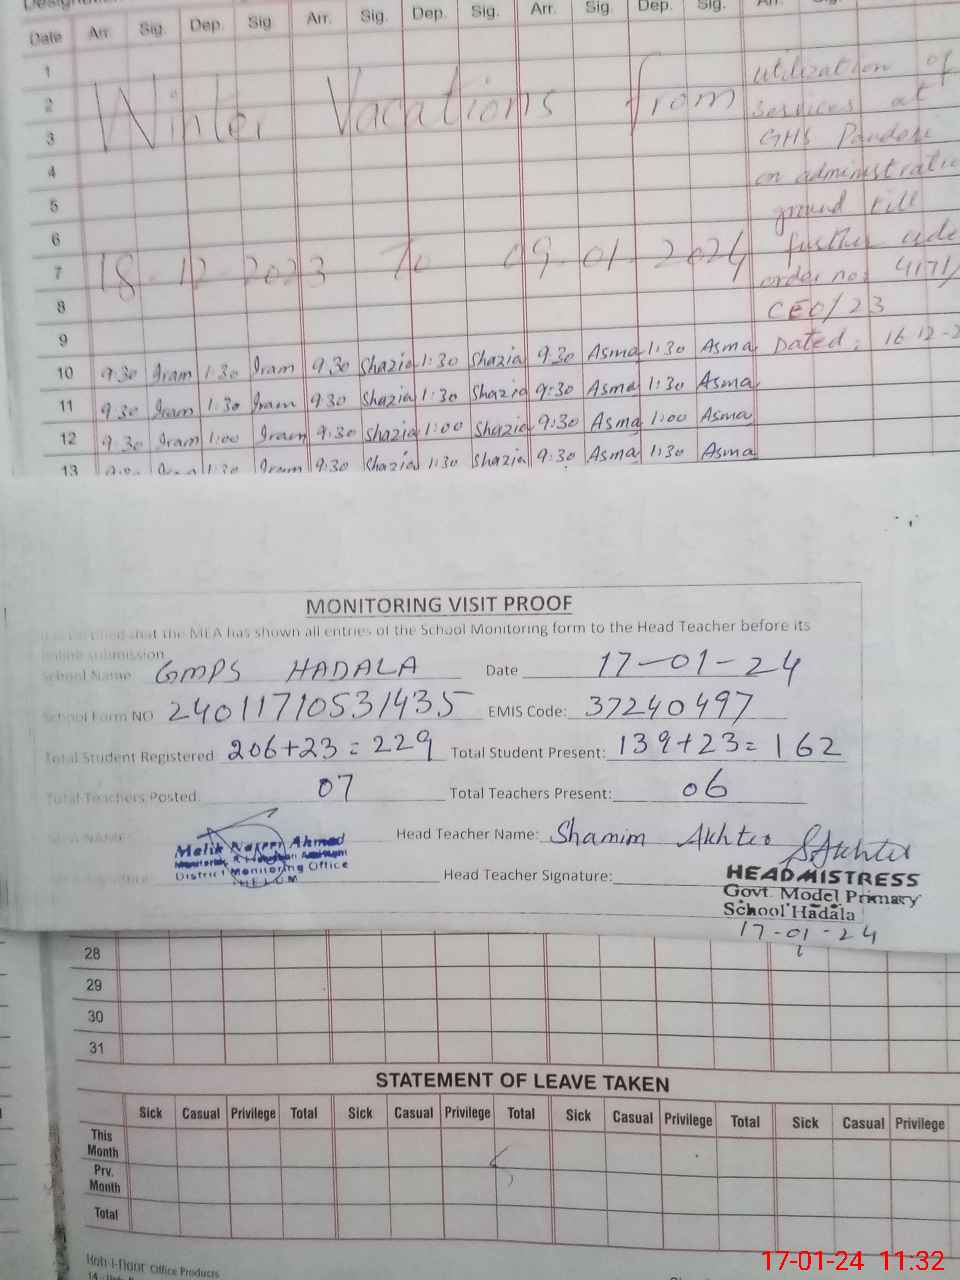 Date Arr. Sig. Dep. Sig Arr. Sig. Dep. Sig. Arr. Sig. Dep. Sig. Arr.
1
2
3
4
5
6
7
8
9
Winter Vacations from
18-12-2023 To 09-01-2024
utilization of
services at
GHS
on administrative
ground till
further
order no: 4171/
CEO/23
Dated: 16 12-2
10 9:30 Iram 1:30 Iram 9:30 Shazia 1:30 Shazia 9:30 Asma 1:30 Asma
11 9:30 Iram 1:30 Iram 9:30 Shazia 1:30 Shazia 9:30 Asma 1:30 Asma
12 9:30 Iram 1:00 Iram 9:30 Shazia 1:00 Shazia 9:30 Asma 1:00 Asma
13 Iram 9:30 Shazia 1:30 Shazia 9:30 Asma 1:30 Asma
MONITORING VISIT PROOF
that the MEA has shown all entries of the School Monitoring form to the Head Teacher before its
online submission
School Name GMPS HADALA Date 17-01-24
School Form NO 24011710531435 EMIS Code: 37240497
Total Student Registered 206+23=229 Total Student Present: 139+23=162
Total Teachers Posted. 07 Total Teachers Present: 06
Head Teacher Name: Shamim Akhter
Malik Ahmed
District Monitoring Office
Head Teacher Signature: SAkhter
HEADMISTRESS
Govt. Model Primary
School Hadala
17-01-24
28
29
30
31
STATEMENT OF LEAVE TAKEN
Sick Casual Privilege Total Sick Casual Privilege Total Sick Casual Privilege Total Sick Casual Privilege
This Month
Prv. Month
Total
Office Products
17-01-24 11:32